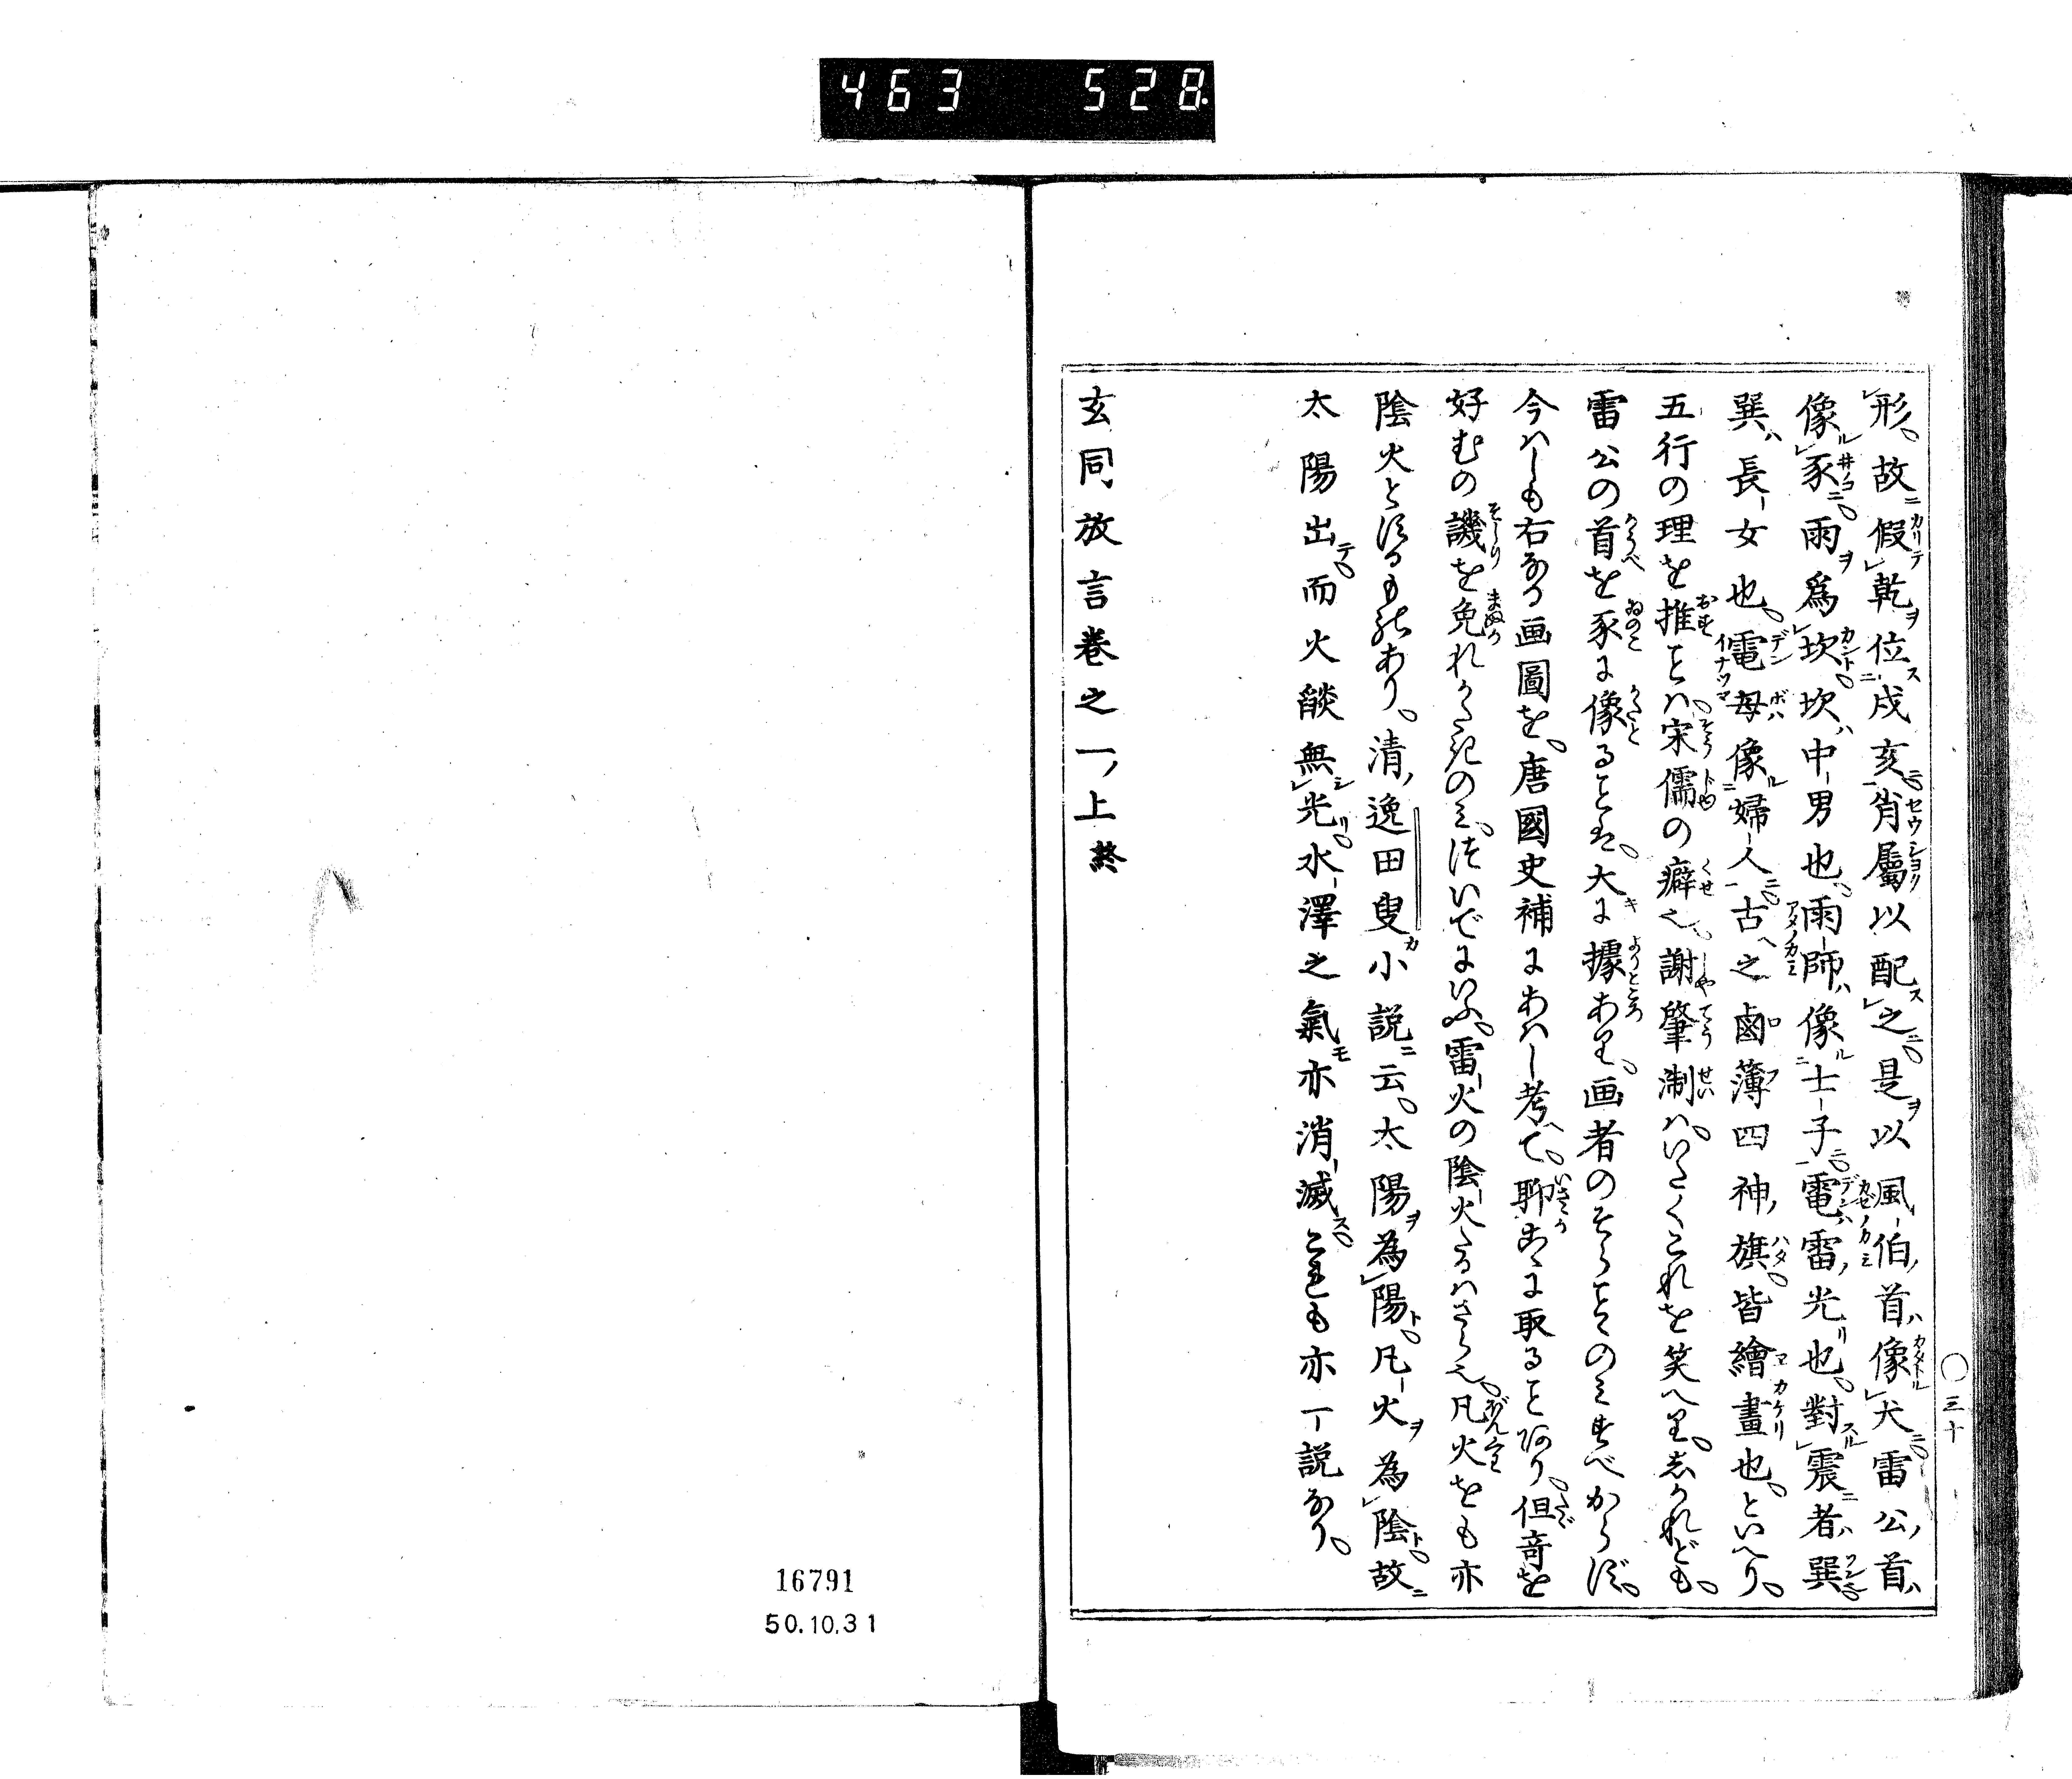 463 528
形。故假乾位戌亥肖屬以配之。是以風伯首像犬雷公首
像豕。雨爲坎。坎中男也。雨師像士子。電雷光也。對震者巽
巽長女也。電母像婦人。古之鹵薄四神旗。皆繪畫也。といへり。
五行の理を推ことハ。宋儒の癖也。謝肇淛ハ。いたくこれを笑へり。しかれども。
雷公の首を豕に像ることは。大に據あり。画者のそらことのみすべからず。
今ハしも右なる画圖を。唐國史補にあハし考へて。聊こゝに取ることあり。但竒を
好むの譏を免れかたきのミ。ついでにいふ。雷火の陰火たるハさら也。凡火をも亦
陰火とするも説あり。清逸田叟小説云。太陽為陽。凡火為陰。故
太陽出。而火燄無光。水澤之氣亦消滅。これも亦一説なり。
玄同放言巻之一上終
〇三十
16791
50.10.31